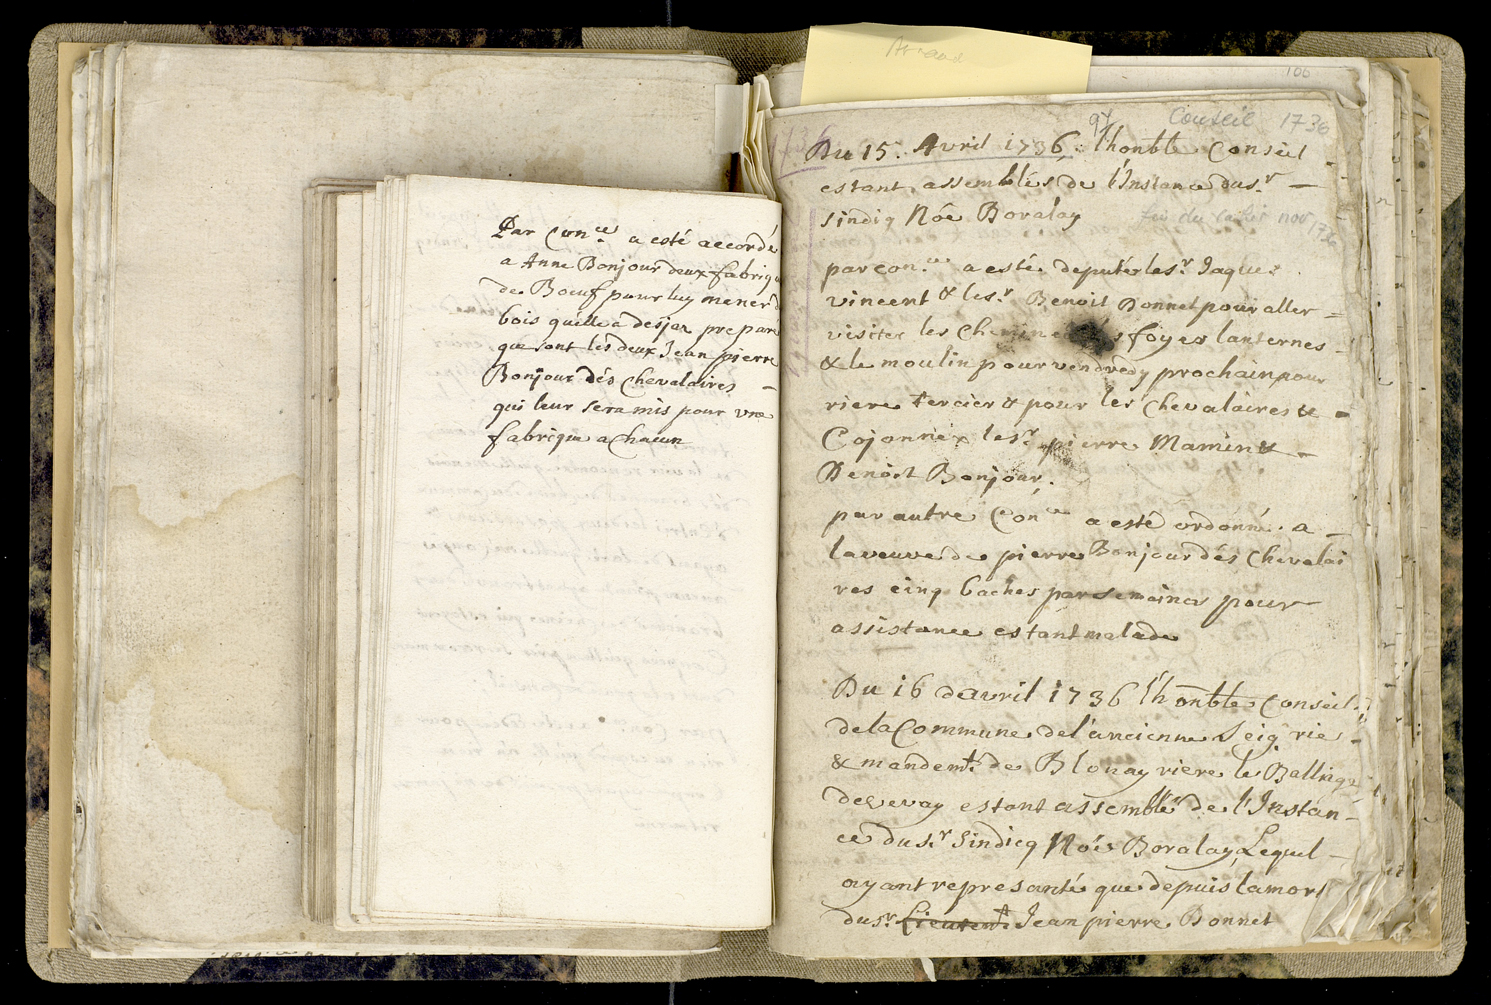 Par Con.ce a esté accordé
a Anne Bonjour deux fabriq
de Boeuf pour luy mener d
bois quelle a desjaz preparé
que sont les deux Jean pierre
Bonjour dés Chevalaires —
qui leur sera mis pour vne
fabrique a Chacun
Arnaud
106
97 Conseil 1736
1736
Du 15. Avril 1736, l'honble Conseil
estant assemblés de l'Instance du sr —
sindiq Nóé Boralay
fin du cahier nov 1736
par con.ce a esté deputér le sr Jaques
vincent & le sr Benoit Bonnet pour aller
visiter les Chemin foyer lanternes
& le moulin pour vendredy prochain pour
riere tercier & pour les Chevalaires &
Cojonnex le sr pierre Mamin &
Benoit Bonjour.
par autre Con.ce a esté ordonné a
la veuve de pierre Bonjour dés Chevalai
res cinq baches par semaines pour
assistance estant malade
Du 16 davril 1736 l'honble Conseil
de la Commune de l'ancienne Seigrie
& mandemt de Blonay riere le Balliage
de vevay estant assemblé de l'Instan-
ce du sr Sindicq Nóé Boralay, Lequel
ayant represanté que depuis la mort
du sr Lieutent Jean pierre Bonnet